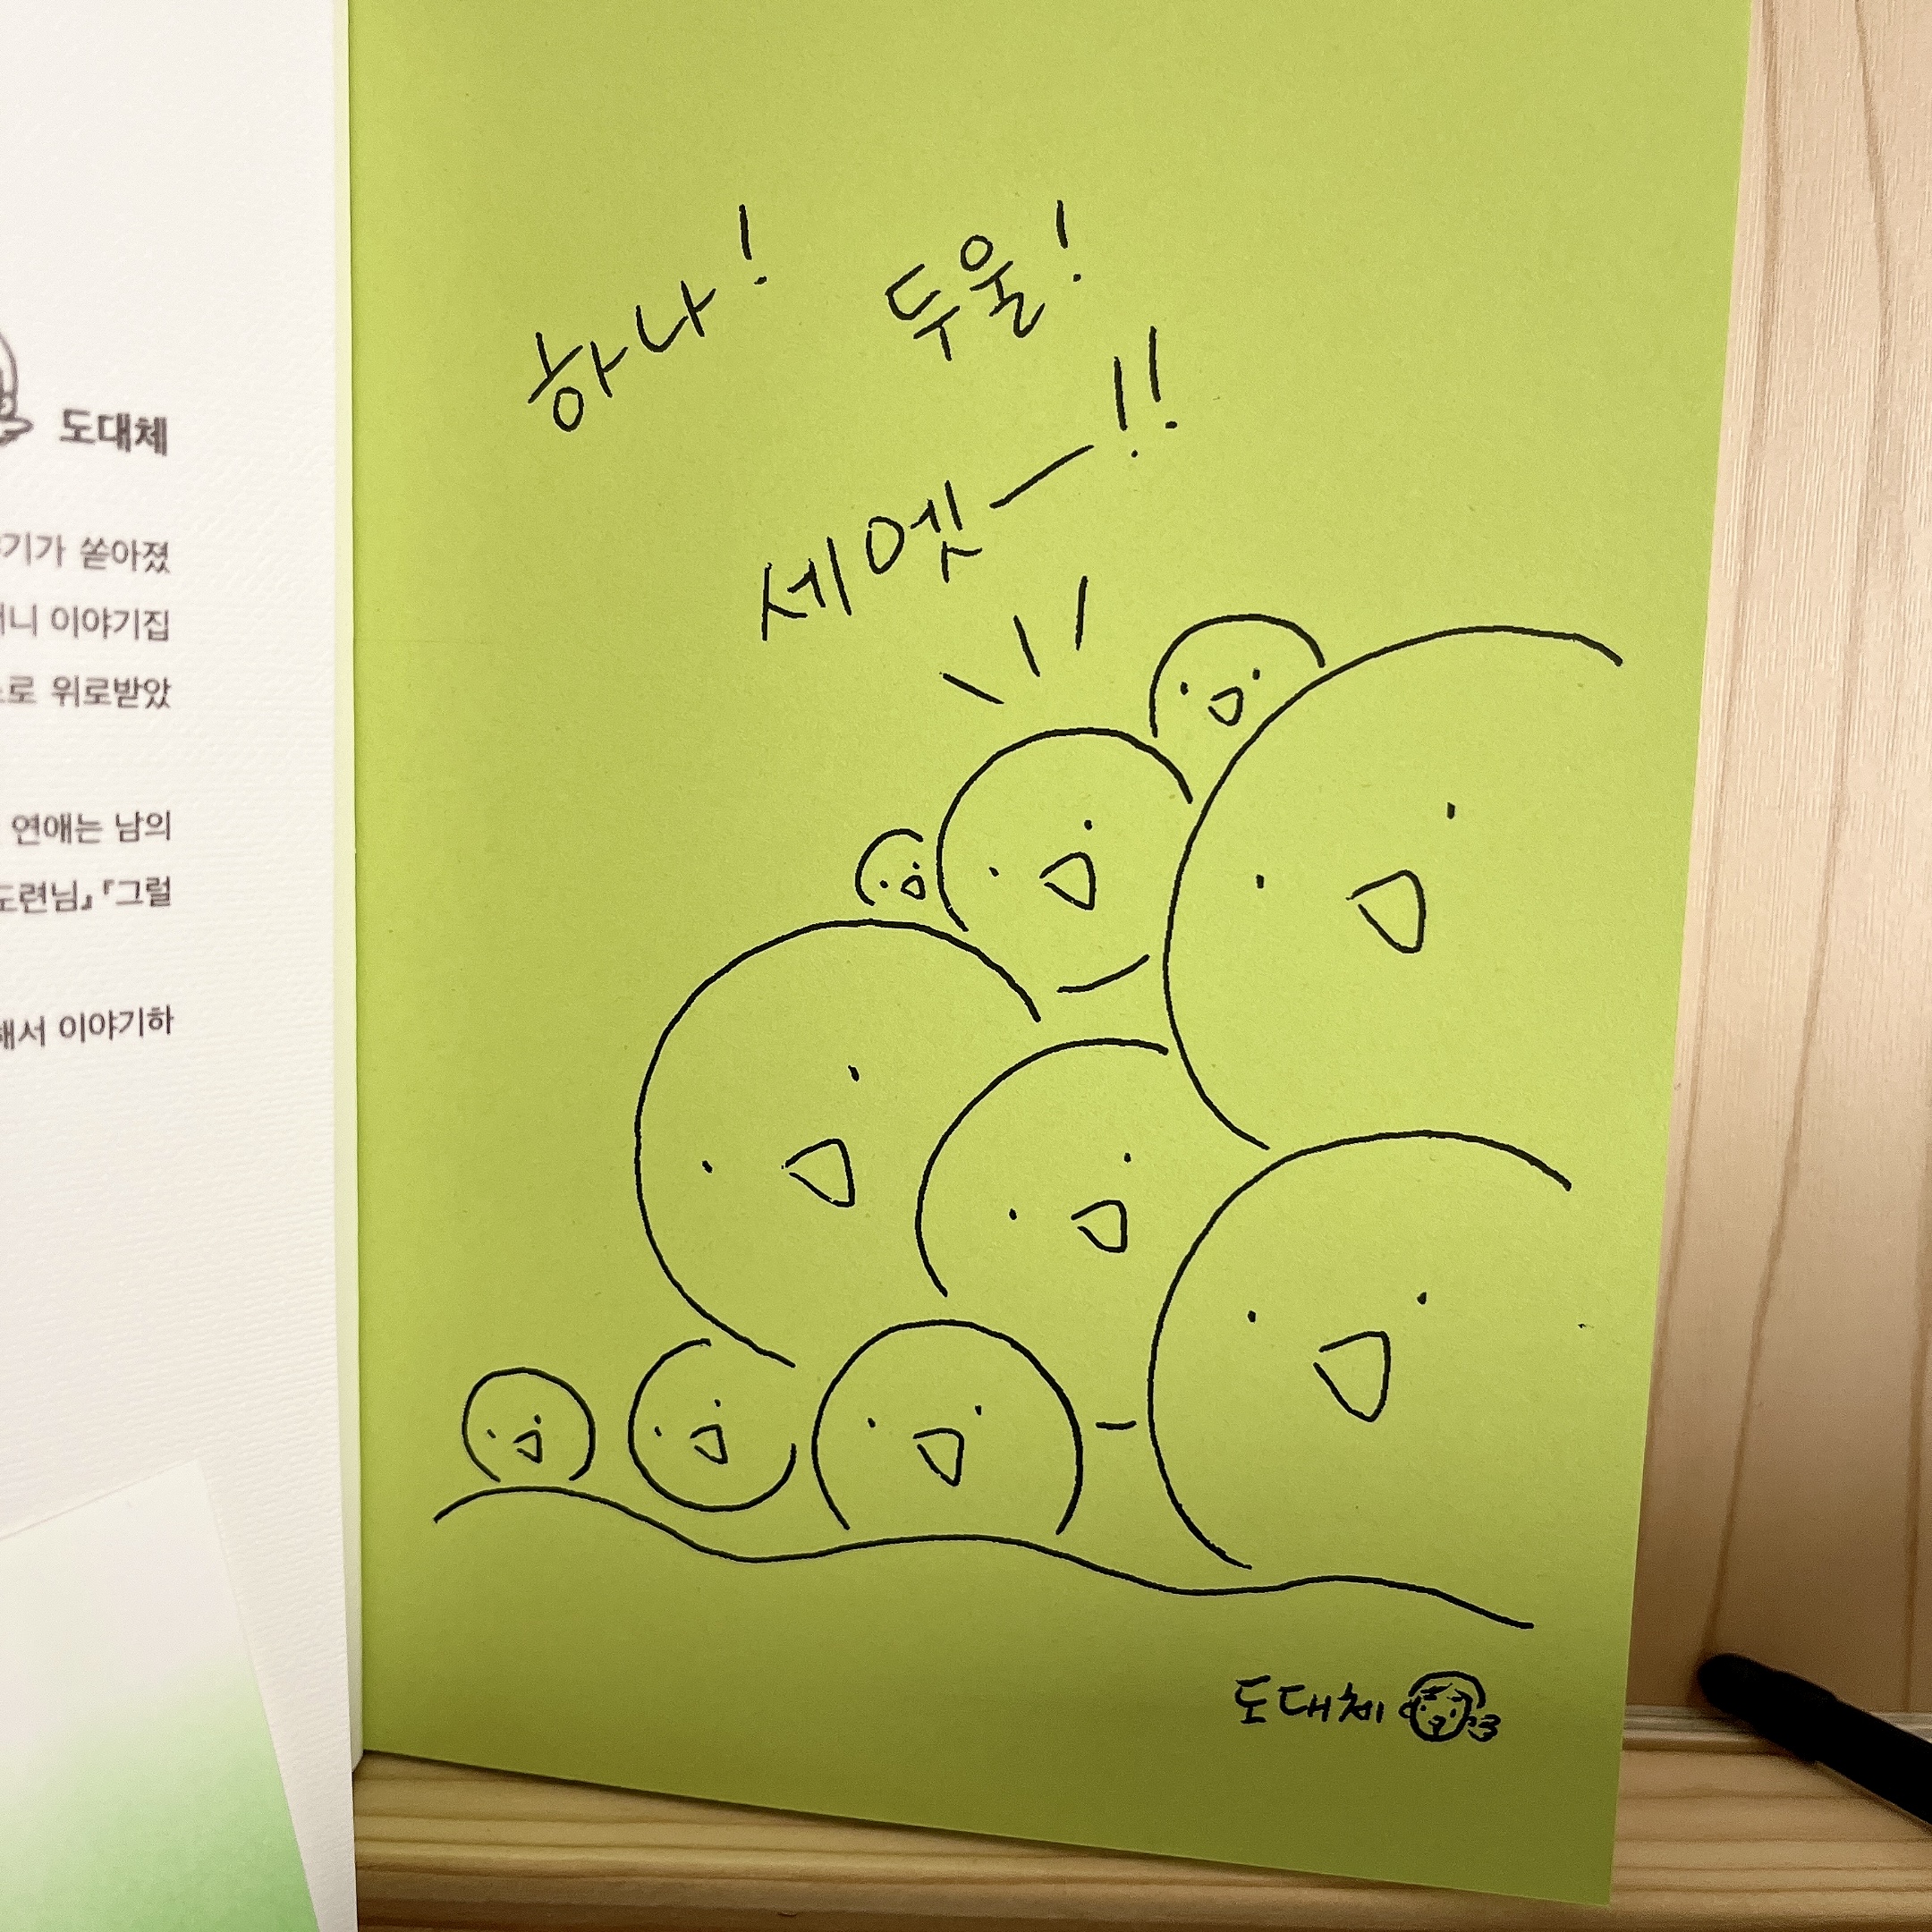 도대체
기가 쏟아졌
니 이야기집
로 위로받았
연애는 남의
도련님』『그럴
해서 이야기하
하나! 두울!
세엣ー!!
도대체